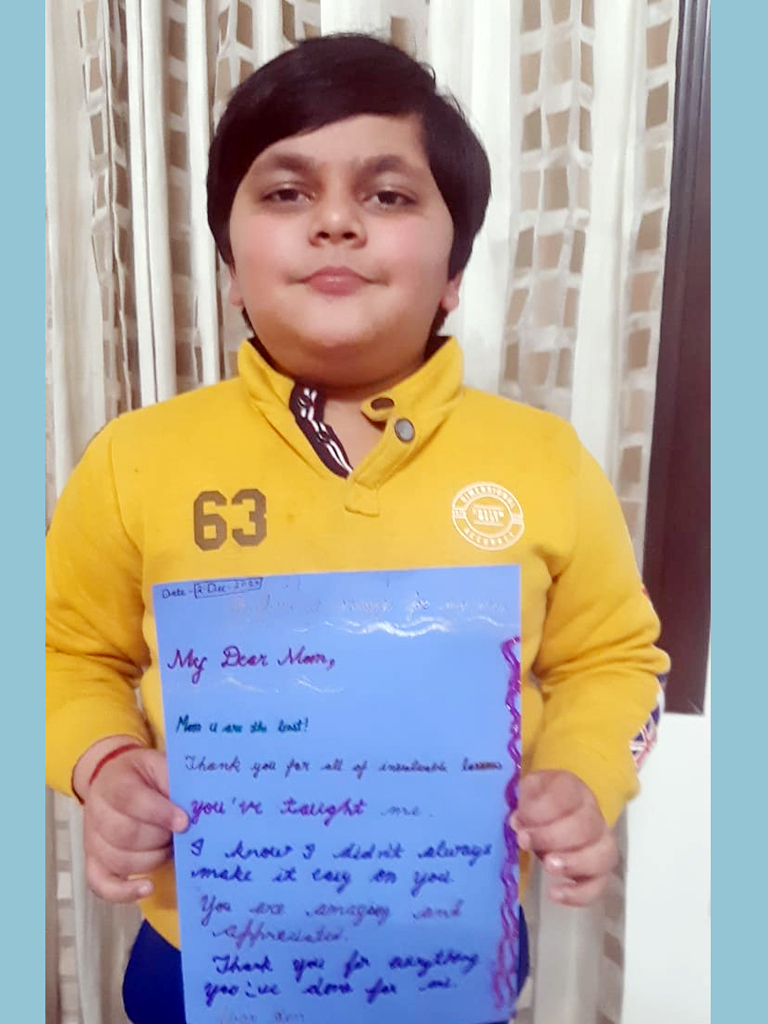 63
DIMENSIONAL
ACCURACY
Date - 2-Dec-
for my
My Dear Mom,
Mom u are the best!
Thank you for all of invaluable lessons
you've taught me.
I know I didn't always
make it easy on you
You are amazing and
appreciated.
Thank you for everything
you've done for me.